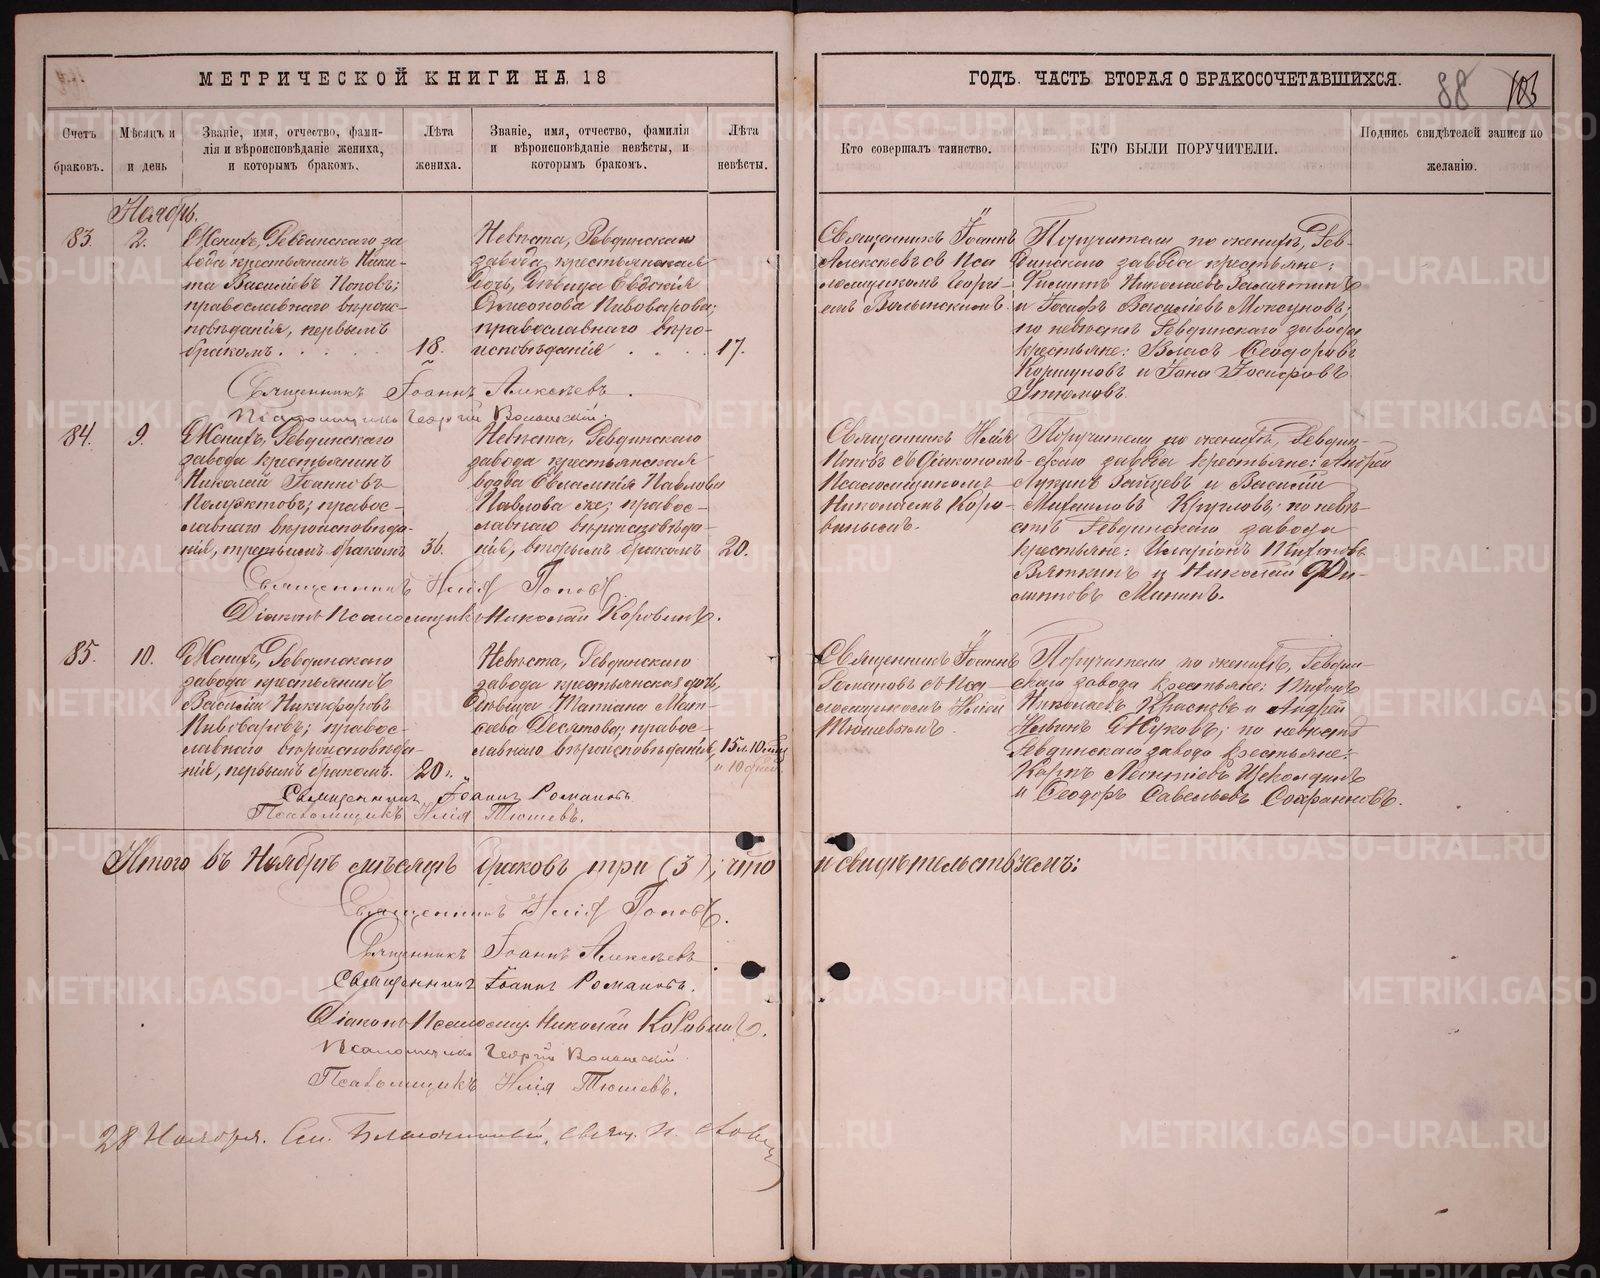 МЕТРИЧЕСКОЙ КНИГИ НА 18
ГОДЪ. ЧАСТЬ ВТОРАЯ О БРАКОСОЧЕТАВШИХСЯ.
88
Счетъ браковъ.
Мѣсяцъ и и день
Званіе, имя, отчество, фами-
лія и вѣроисповѣданіе жениха,
и которымъ бракомъ.
Лѣта жениха.
Званіе, имя, отчество, фамилія
и вѣроисповѣданіе невѣсты, и
которымъ бракомъ.
Лѣта невѣсты.
Кто совершалъ таинство.
КТО БЫЛИ ПОРУЧИТЕЛИ.
Подпись свидѣтелей записи по
желанію.
Ноябрь.
83.
2.
Женихъ, Ревдинскаго за
вода крестьянинъ Ники-
та Васильевъ Поповъ;
православнаго вѣроис-
повѣданія, первымъ
бракомъ.
18.
Невѣста, Ревдинскаго
завода крестьянская
дочь, дѣвица Евдокія
Симеонова Пивоварова;
православнаго вѣро-
исповѣданія
17.
Священникъ Іоаннъ
Алексѣевъ съ Пса
ломщикомъ Георгі-
емъ
Поручители по женихѣ, Рев-
динскаго завода крестьяне:
Филиппъ Николаевъ
и Іосифъ Васильевъ
по невѣстѣ Ревдинскаго завода
крестьяне: Власъ Ѳеодоровъ
Коршуновъ и Іона Іосифовъ
Утюмовъ.
Священникъ Іоаннъ Алексѣевъ.
Псаломщикъ Георгій
84.
9.
Женихъ, Ревдинскаго
завода крестьянинъ
Николай Іоанновъ
Полуектовъ; правос-
лавнаго вѣроисповѣда-
нія, третьимъ бракомъ
36.
Невѣста, Ревдинскаго
завода крестьянская
вдова Евлампія Павлова
Павлова же; правос-
лавнаго вѣроисповѣда-
нія, вторымъ бракомъ
20.
Священникъ Илія
Поповъ съ діакономъ-
Псаломщикомъ
Николаемъ Коро-
винымъ.
Поручители по женихѣ, Ревдин-
скаго завода крестьяне: Андрей
Лукинъ Зайцевъ и Василій
Михаиловъ Кругловъ; по невѣ-
стѣ Ревдинскаго завода
крестьяне: Иларіонъ
Вяткинъ и Николай Фи-
липповъ Мининъ.
Священникъ Илія Поповъ.
Діаконъ-Псаломщикъ Николай Коровинъ.
85.
10.
Женихъ, Ревдинскаго
завода крестьянинъ
Василій Никифоровъ
Пивоваровъ; правос-
лавнаго вѣроисповѣда-
нія, первымъ бракомъ.
20.
Невѣста, Ревдинскаго
завода крестьянская дочь,
дѣвица Татіана Мат-
ѳеева Десятова; правос-
лавнаго вѣроисповѣданія,
15 л. 10 мѣс.
и 10 дней.
Священникъ Іоаннъ
Романовъ съ Пса-
ломщикомъ Иліей
Тюшевымъ.
Поручители по женихѣ, Ревдин-
скаго завода крестьяне:
Николаевъ Красновъ и Андрей
Жуковъ; по невѣстѣ
Ревдинскаго завода крестьяне:
Карпъ Леонтіевъ Щеколдинъ
и Ѳеодоръ Савельевъ Сохранновъ.
Священникъ Іоаннъ Романовъ
Псаломщикъ Илія Тюшевъ.
Итого въ Ноябрѣ мѣсяцѣ браковъ три (3); что и свидѣтельствуемъ:
Священникъ Илія Поповъ.
Священникъ Іоаннъ Алексѣевъ
Священникъ Іоаннъ Романовъ.
Діаконъ-Псаломщ. Николай Коровинъ.
Псаломщикъ Георгій
Псаломщикъ Илія Тюшевъ.
28 Ноября. См. Благочинный, свящ. П.
METRIKI.GASO-URAL.RU